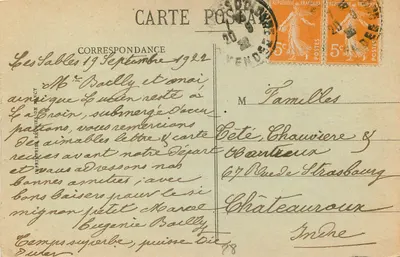 CARTE POSTALE
CORRESPONDANCE
Les Sables 19 Septembre 1922
Mr Bailly et moi
ainsi que Lucien resté à
La Croix, submergé d'occu
pations, vous remercions
des aimables lettre & carte
reçues avant notre départ
et vous adressons nos
bonnes amitiés; avec
bons baisers pour le si
mignon petit Marcel
Eugénie Bailly
Temps superbe, puisse-t-il
durer
M
Familles
Tété, Chauvière &
67 Rue de Strasbourg
Châteauroux
Indre
5c
5c
20
9
22
VENDEE